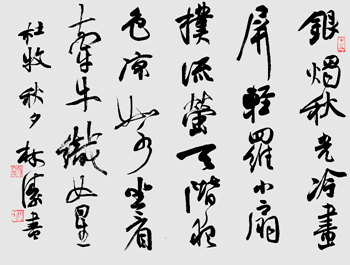 銀燭秋光冷畫
屏輕羅小扇
撲流螢天階夜
色凉如水坐看
牽牛織女星
杜牧秋夕林書